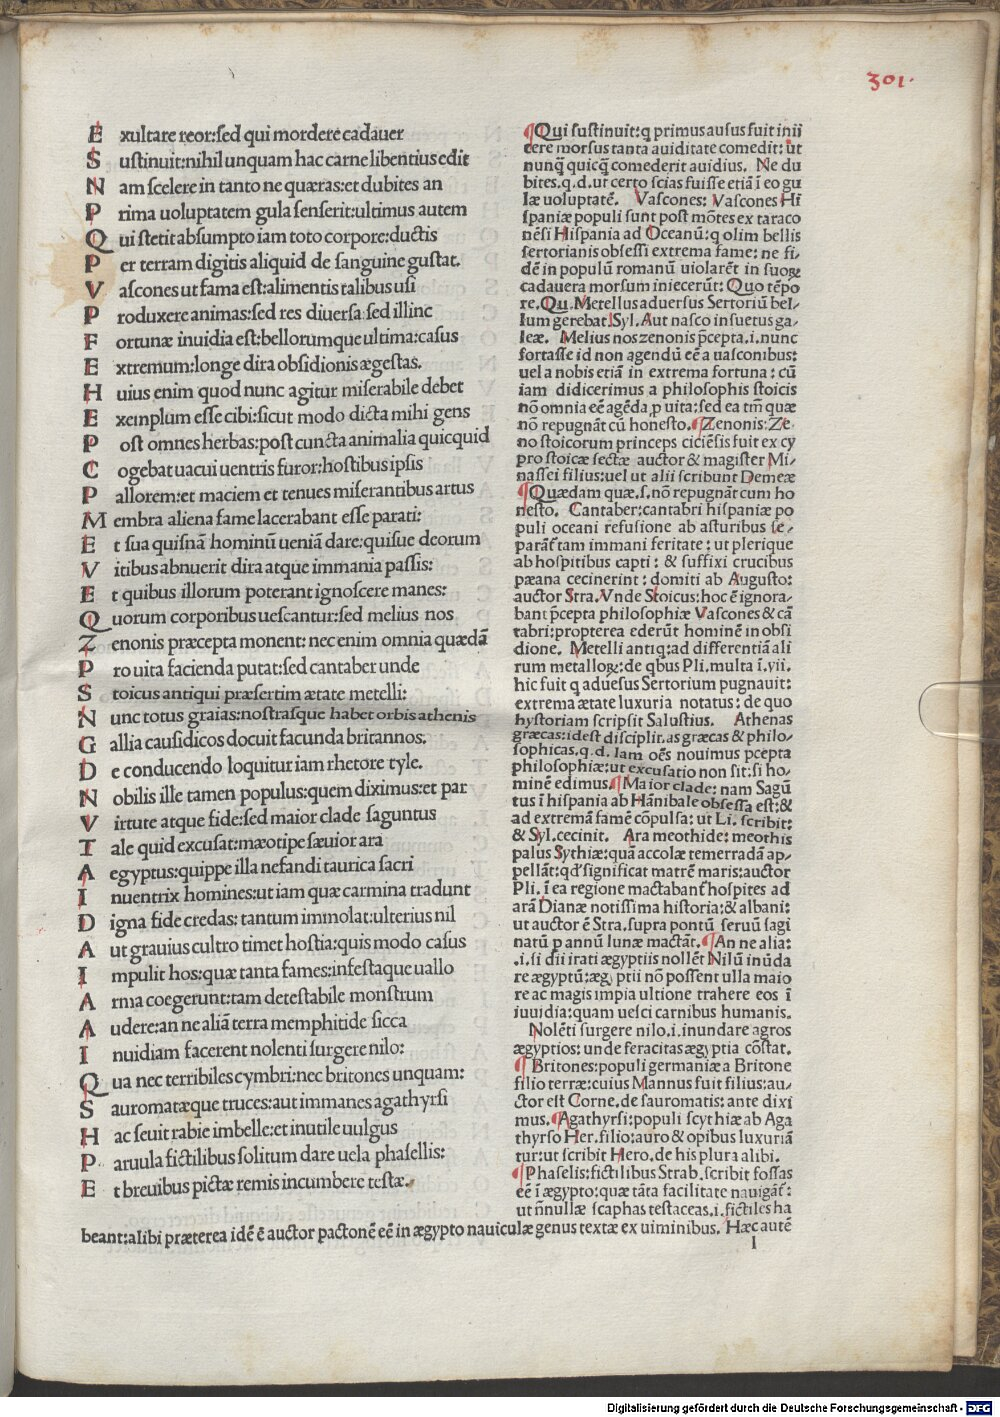 301.
E xultare reor:sed qui mordere cadauer
S ustinuit:nihil unquam hac carne libentius edit
N am scelere in tanto ne quæras:et dubites an
P rima uoluptatem gula senserit:ultimus autem
Q ui stetit absumpto iam toto corpore:ductis
P er terram digitis aliquid de sanguine gustat.
V ascones ut fama est:alimentis talibus usi
P roduxere animas:sed res diuersa:sed illinc
F ortunæ inuidia est:bellorumque ultima:casus
E xtremum:longe dira obsidionis ægestas.
H uius enim quod nunc agitur miserabile debet
E xemplum esse cibi:sicut modo dicta mihi gens
P ost omnes herbas:post cuncta animalia quicquid
C ogebat uacui uentris furor:hostibus ipsis
P allorem:et maciem et tenues miserantibus artus
M embra aliena fame lacerabant esse parati:
E t sua quisnā hominū ueniā dare:quisue deorum
V iribus abnuerit dira atque immania passis:
E t quibus illorum poterant ignoscere manes:
Q uorum corporibus uescantur:sed melius nos
Z enonis præcepta monent: nec enim omnia quædā
P ro uita facienda putat:sed cantaber unde
S toicus antiqui præsertim ætate metelli:
N unc totus graias:nostrasque habet orbis athenis
G allia causidicos docuit facunda britannos.
D e conducendo loquitur iam rhetore tyle.
N obilis ille tamen populus:quem diximus:et par
V irtute atque fide:sed maior clade saguntus
T ale quid excusat:mæotipe sæuior ara
A egyptus:quippe illa nefandi taurica sacri
I nuentrix homines:ut iam quæ carmina tradunt
D igna fide credas: tantum immolat:ulterius nil
A ut grauius cultro timet hostia:quis modo casus
I mpulit hos:quæ tanta fames:infestaque uallo
A rma coegerunt:tam detestabile monstrum
A udere:an ne aliā terra memphitide sicca
I nuidiam facerent nolenti surgere nilo:
Q ua nec terribiles cymbri:nec britones unquam:
S auromatæque truces:aut immanes agathyrsi
H ac seuit rabie imbelle:et inutile uulgus
P aruula fictilibus solitum dare uela phasellis:
E t breuibus pictæ remis incumbere testæ.
¶Qui sustinuit:q primus ausus fuit inii
cere morsus tanta auiditate comedit: ut
nunq̄ quicq̄ comederit auidius. Ne du
bites.q.d.ut certo scias fuisse etiā ī eo gu
læ uoluptatē. Vascones: Vascones Hi
spaniæ populi sunt post mōtes ex taraco
nēsi Hispania ad Oceanū:q olim bellis
sertorianis obsessi extrema fame: ne fi-
dē in populū romanū uiolarēt in suoꝝ
cadauera morsum iniecerūt: Quo tēpo
re.Qu.Metellus aduersus Sertoriū bel-
lum gerebat.Syl.Aut nasco insuetus ga-
leæ. Melius nos zenonis p̄cepta.i.nunc
fortasse id non agendū eē a uasconibus:
uel a nobis etiā in extrema fortuna: cū
iam didicerimus a philosophis stoicis
nō omnia eē agēda p uita:sed ea tm̄ quæ
nō repugnāt cū honesto.¶Zenonis: Ze-
no stoicorum princeps ciciēsis fuit ex cy
pro stoicæ sectæ auctor & magister Mi-
nassei filius:uel ut alii scribunt Demeæ
¶Quædam quæ.s.nō repugnāt cum ho
nesto. Cantaber:cantabri hispaniæ po
puli oceani refusione ab asturibus se-
parāt̄ tam immani feritate: ut plerique
ab hospitibus capti: & suffixi crucibus
pæana cecinerint: domiti ab Augusto:
auctor Stra.Vnde Stoicus:hoc ē ignora-
bant p̄cepta philosophiæ Vascones & cā
tabri:propterea ederūt hominē in obsi
dione. Metelli antiq:ad differentiā ali
rum metalloꝝ:de qbus Pli.multa ī.vii.
hic fuit q aduesus Sertorium pugnauit:
extrema ætate luxuria notatus: de quo
hystoriam scripsit Salustius. Athenas
græcas:idest disciplinas græcas & philo-
sophicas.q.d.Iam oēs nouimus p̄cepta
philosophiæ:ut excusatio non sit:si ho-
minē edimus.¶Maior clade: nam Sagū
tus ī hispania ab Hānibale obsessa est:&
ad extremā famē cōpulsa: ut Li. scribit:
& Syl.cecinit. Ara meothide: meothis
palus Sythiæ:quā accolæ temerradā ap-
pellāt:qd̄ significat matrē maris:auctor
Pli.ī ea regione mactabant̄ hospites ad
arā Dianæ notissima historia:& albani:
ut auctor ē Stra.supra pontū seruū sagi
natū p annū lunæ mactāt.¶An ne alia:
.i.si dii irati ægyptiis nollēt Nilū inūda
re ægyptū:ægyptii nō possent ulla maio
re ac magis impia ultione trahere eos ī
iuuidia:quam uesci carnibus humanis.
Nolēti surgere nilo.i.inundare agros
ægyptios: unde feracitas ægyptia cōstat.
¶Britones:populi germaniæ a Britone
filio terræ:cuius Mannus fuit filius:au-
ctor est Corne.de sauromatis: ante dixi
mus.¶Agathyrsi:populi scythiæ ab Aga
thyrso Her.filio:auro & opibus luxuriā
tur:ut scribit Hero.de his plura alibi.
¶Phaselis:fictilibus Strab.scribit fossas
eē ī ægypto:quæ tāta facilitate nauigāt̄:
ut nnullæ scaphas testaceas.i.fictiles ha
beant:alibi præterea idē ē auctor pactonē eē in ægypto nauiculæ genus textæ ex uiminibus. Hæc autē
I
Digitalisierung gefördert durch die Deutsche Forschungsgemeinschaft - DFG